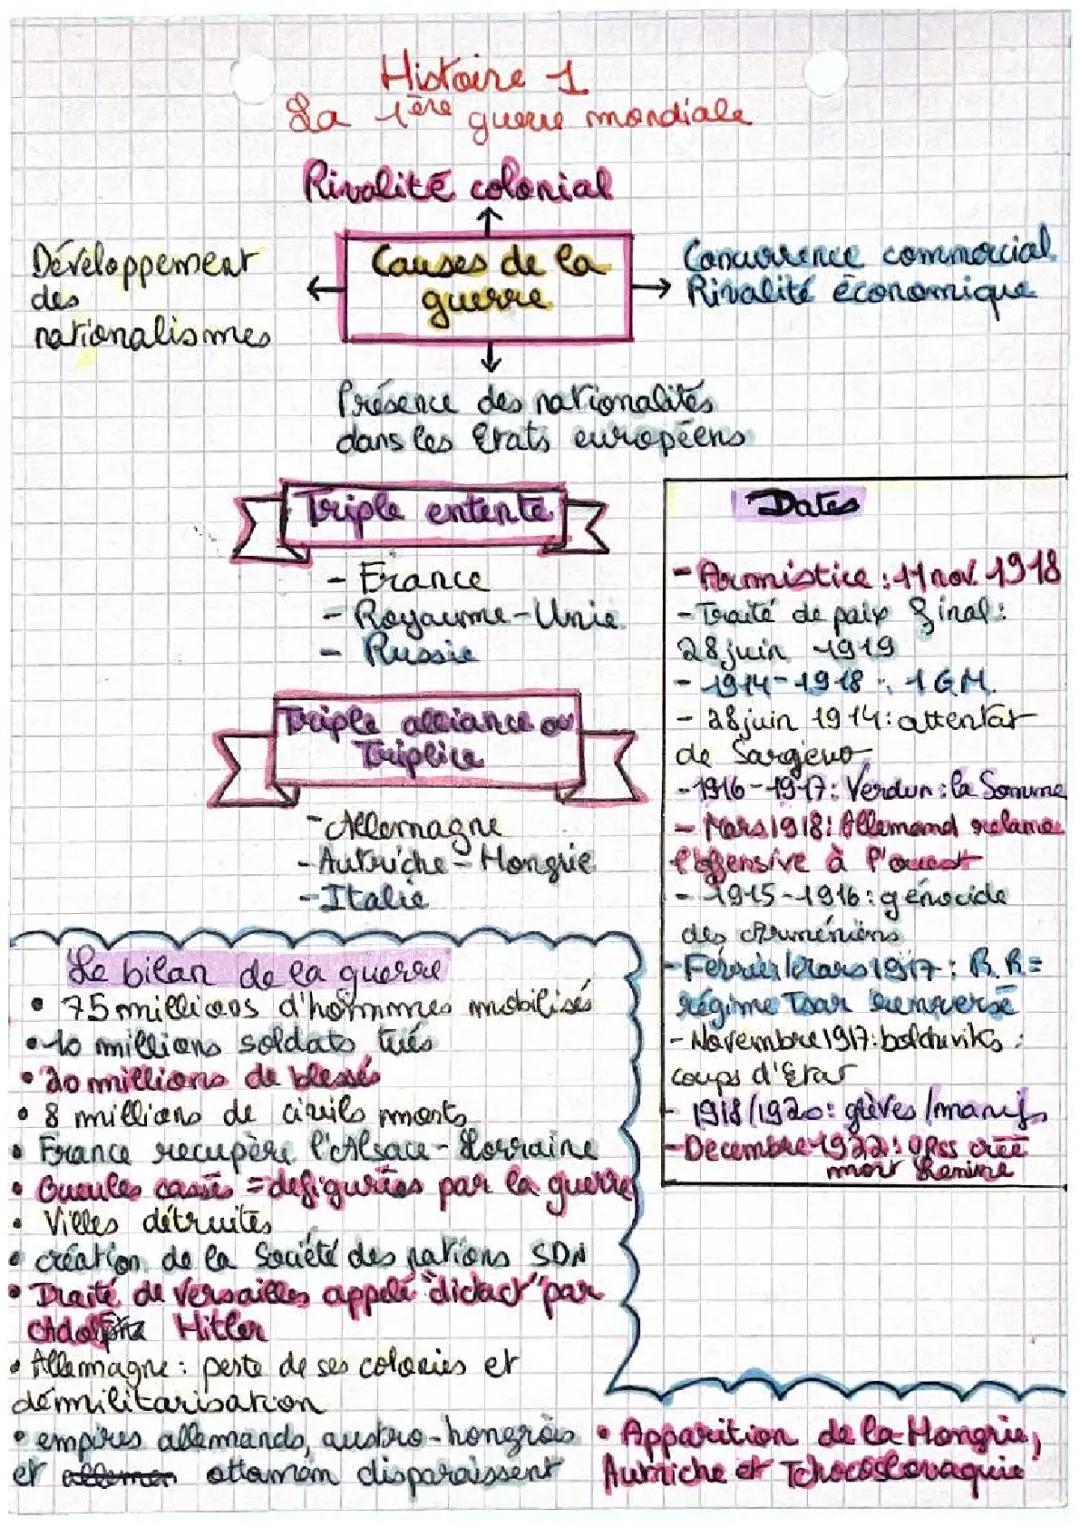 Histoire 1
La 1ère guerre mondiale
Rivalité colonial
Causes de la
guerre
Développement
des
nationalismes
Concurrence commercial
Rivalité économique
Présence des nationalités
dans les Etats européens
Triple entente
- France
- Royaume-Unie
- Russie
Triple alliance ou
Triplice
- Allemagne
- Autriche-Hongrie
- Italie
Dates
- Armistice : 11 nov. 1918
- Traité de paix final :
28 juin 1919
- 1914-1918 : 1 GM.
- 28 juin 1914 : attentat
de Sargevo
- 1916-1917 : Verdun : la Somme
- Mars 1918 : Allemand relance
l'offensive à l'ouest
- 1915-1916 : génocide
des Arméniens
- Février/Mars 1917 : R.R =
régime Tsar renversé
- Novembre 1917 : bolcheviks :
coups d'Etat
- 1918/1920 : grèves/manifs
- Decembre 1922 : URSS créé
mort Lenine
Le bilan de la guerre
• 75 millions d'hommes mobilisés
• 10 millions soldats tués
• 20 millions de blessés
• 8 millions de civils morts
• France recupère l'Alsace-Lorraine
• Gueules cassés = défigurées par la guerre
• Villes détruites
• création de la Société des nations SDN
• Traité de Versailles appelé "dictact" par
Adolphe Hitler
• Allemagne : perte de ses colonies et
démilitarisation
• empires allemands, austro-hongrois
et ottoman disparaissent
• Apparition de la Hongrie,
Autriche et Tchocoslovaquie